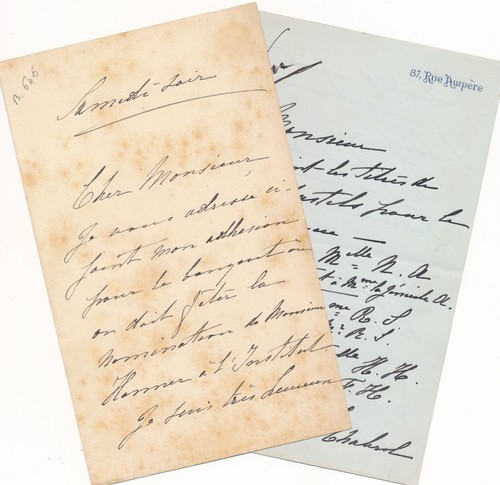 B. 646
Samedi soir
Cher Monsieur,
Je vous adresse ci-
joint mon adhésion
pour le banquet où
on doit fêter la
nomination de Monsieur
à l'Institut.
Je suis très
87, Rue Ampère
Monsieur
les titres de
pastels pour le
Mlle N. A
à Mme la Générale A.
me R. S
R. S.
lle H. H.
H.
Chabrol